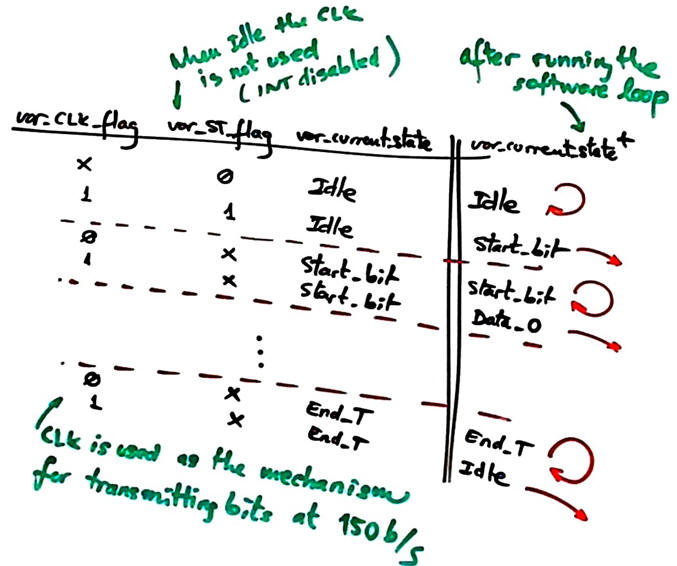 When Idle the CLK
is not used
(INT disabled)
after running the
software loop
var_CLK_flag var_ST_flag var_current_state var_current_state+
X 0 Idle Idle
1 1 Idle Start_bit
0 X Start_bit Start_bit
1 X Start_bit Data_0
0 X End_T End_T
1 X End_T Idle
CLK is used as the mechanism
for transmitting bits at 150 b/s